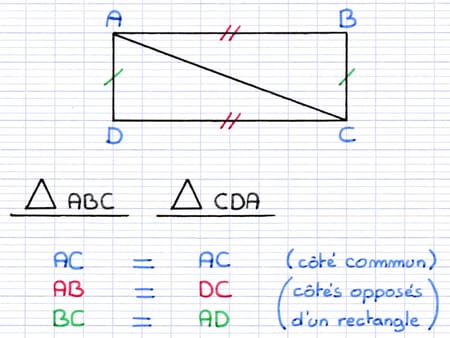 A B
D C
△ ABC △ CDA
AC = AC (côté commun)
AB = DC (côtés opposés
BC = AD d'un rectangle)